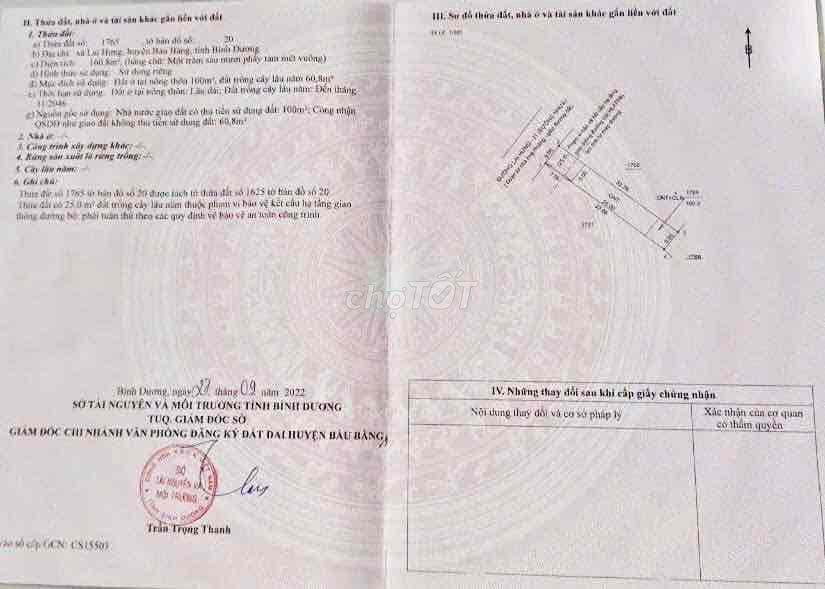 II. Thửa đất, nhà ở và tài sản khác gắn liền với đất
1. Thửa đất:
a) Thửa đất số: 1765 tờ bản đồ số: 20
b) Địa chỉ: xã Lai Hưng, huyện Bàu Bàng, tỉnh Bình Dương
c) Diện tích: 160,8m², (bằng chữ: Một trăm sáu mươi phẩy tám mét vuông)
d) Hình thức sử dụng: Sử dụng riêng
đ) Mục đích sử dụng: Đất ở tại nông thôn 100m², đất trồng cây lâu năm 60,8m²
e) Thời hạn sử dụng: Đất ở tại nông thôn: Lâu dài; Đất trồng cây lâu năm: Đến tháng
11/2046
g) Nguồn gốc sử dụng: Nhà nước giao đất có thu tiền sử dụng đất: 100m²; Công nhận
QSDĐ như giao đất không thu tiền sử dụng đất: 60,8m²
2. Nhà ở: -/-
3. Công trình xây dựng khác: -/-
4. Rừng sản xuất là rừng trồng: -/-
5. Cây lâu năm: -/-
6. Ghi chú:
Thửa đất số 1765 tờ bản đồ số 20 được tách từ thửa đất số 1625 tờ bản đồ số 20
Thửa đất có 25.0 m² đất trồng cây lâu năm thuộc phạm vi bảo vệ kết cấu hạ tầng giao
thông đường bộ: phải tuân thủ theo các quy định về bảo vệ an toàn công trình
Bình Dương, ngày 27 tháng 09 năm 2022
SỞ TÀI NGUYÊN VÀ MÔI TRƯỜNG TỈNH BÌNH DƯƠNG
TUQ. GIÁM ĐỐC SỞ
GIÁM ĐỐC CHI NHÁNH VĂN PHÒNG ĐĂNG KÝ ĐẤT ĐAI HUYỆN BÀU BÀNG
SỞ
TÀI NGUYÊN VÀ
MÔI TRƯỜNG
TỈNH BÌNH DƯƠNG
Trần Trọng Thanh
vào sổ cấp GCN: CS15503
chợTỐT
III. Sơ đồ thửa đất, nhà ở và tài sản khác gắn liền với đất
B
ONT
ONT+CLN
IV. Những thay đổi sau khi cấp giấy chứng nhận
Nội dung thay đổi và cơ sở pháp lý
Xác nhận của cơ quan
có thẩm quyền